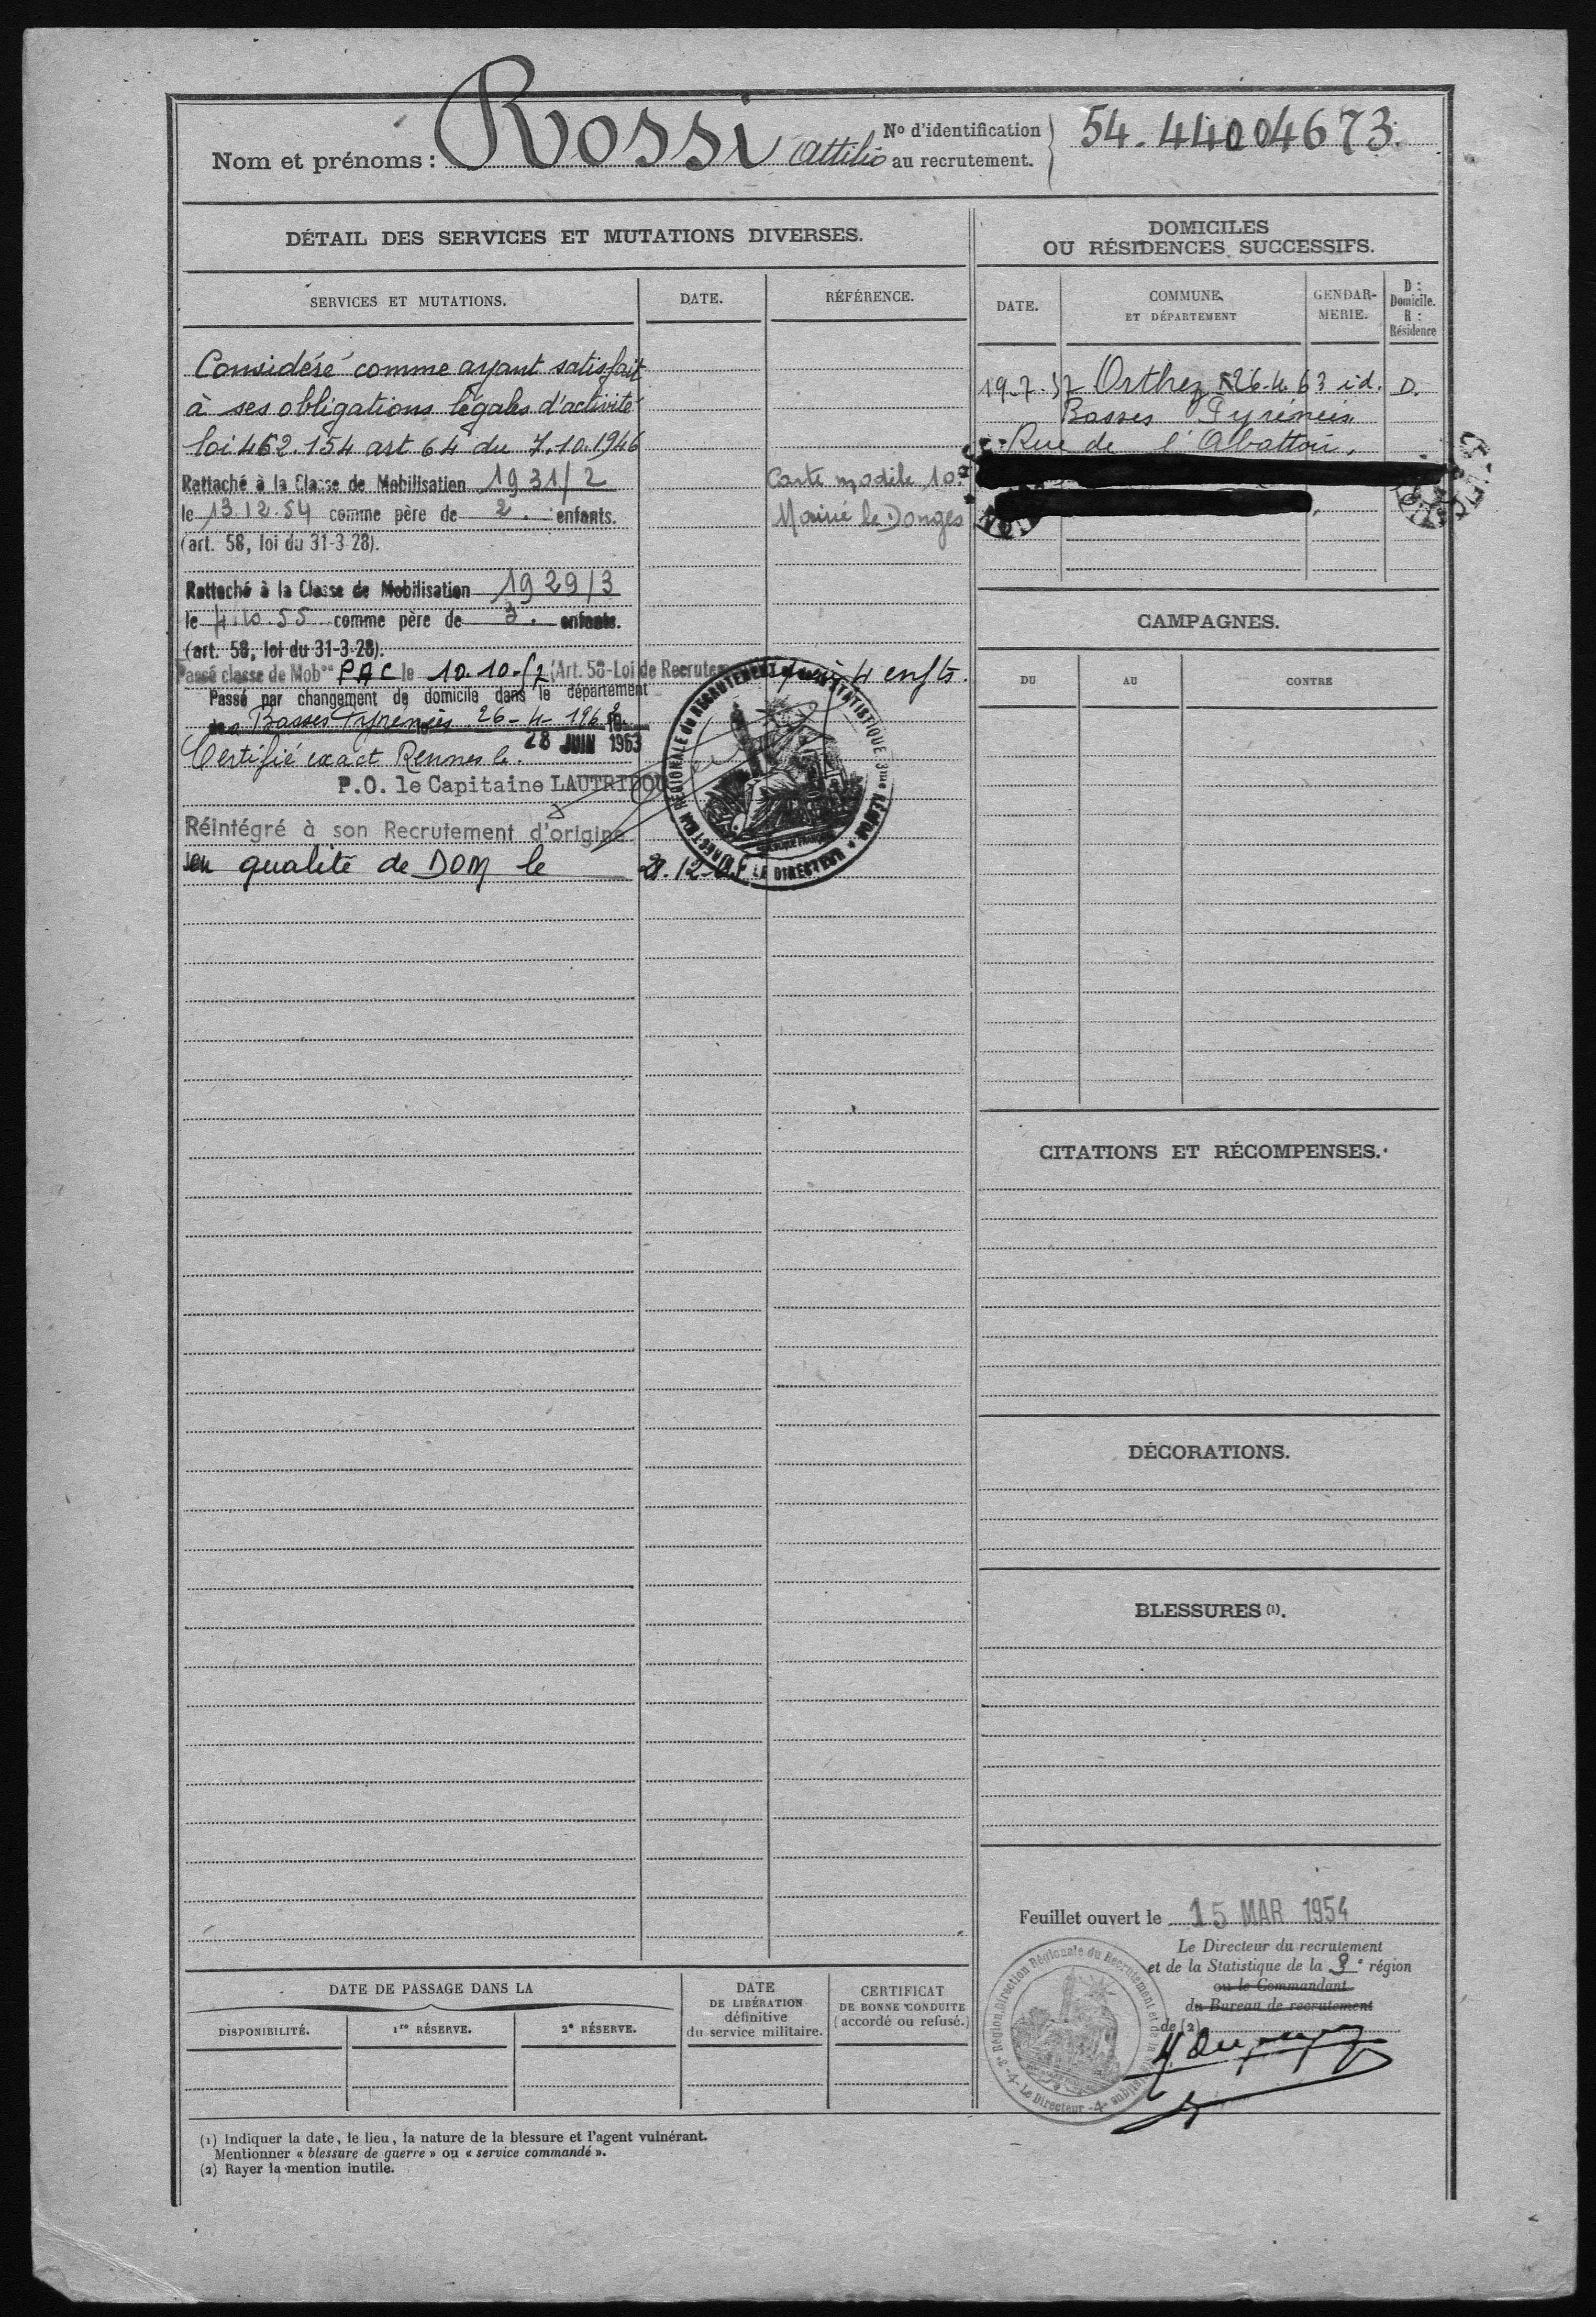 Nom et prénoms : Rossi Attilio
N° d'identification au recrutement. } 54.44004673.
DÉTAIL DES SERVICES ET MUTATIONS DIVERSES.
SERVICES ET MUTATIONS.
DATE.
RÉFÉRENCE.
Considéré comme ayant satisfait
à ses obligations légales d'activité
loi 462.154 art 64 du 7.10.1946
Rattaché à la Classe de Mobilisation 1931/2
le 13.12.54 comme père de 2. enfants.
(art. 58, loi du 31-3-28).
Carte modèle 10
Mairie de Donges
Rattaché à la Classe de Mobilisation 1929/3
le 4.10.55 comme père de 3. enfants.
(art. 58, loi du 31-3-28).
Passé classe de Mob on PAC le 10.10.57 (Art. 58-Loi de Recrutem 4 enfts.
Passé par changement de domicile dans le département
Basses Pyrénées 26-4-196
Certifié exact Rennes le 28 JUIN 1963
P.O. le Capitaine LAUTRIDOU
Réintégré à son Recrutement d'origine
en qualité de DOM le
DIRECTION RÉGIONALE DU RECRUTEMENT ET DE LA STATISTIQUE 3me RÉGION * LE DIRECTEUR
DOMICILES
OU RÉSIDENCES SUCCESSIFS.
DATE.
COMMUNE
ET DÉPARTEMENT
GENDAR-
MERIE.
D :
Domicile.
R :
Résidence
19.7.57 Orthez 26.4.63 id. D.
Basses Pyrénées
Rue de l'Abattoir,
CAMPAGNES.
DU
AU
CONTRE
CITATIONS ET RÉCOMPENSES.
DÉCORATIONS.
BLESSURES (1).
Feuillet ouvert le 15 MAR 1954
Le Directeur du recrutement
et de la Statistique de la 3e région
ou le Commandant
du Bureau de recrutement
de (2)
3e Région Direction Régionale du Recrutement et de la Statistique -4- Le Directeur -4-
DATE DE PASSAGE DANS LA
DISPONIBILITÉ.
1re RÉSERVE.
2e RÉSERVE.
DATE
DE LIBÉRATION
définitive
du service militaire.
CERTIFICAT
DE BONNE CONDUITE
(accordé ou refusé.)
(1) Indiquer la date, le lieu, la nature de la blessure et l'agent vulnérant.
Mentionner « blessure de guerre » ou « service commandé ».
(2) Rayer la mention inutile.